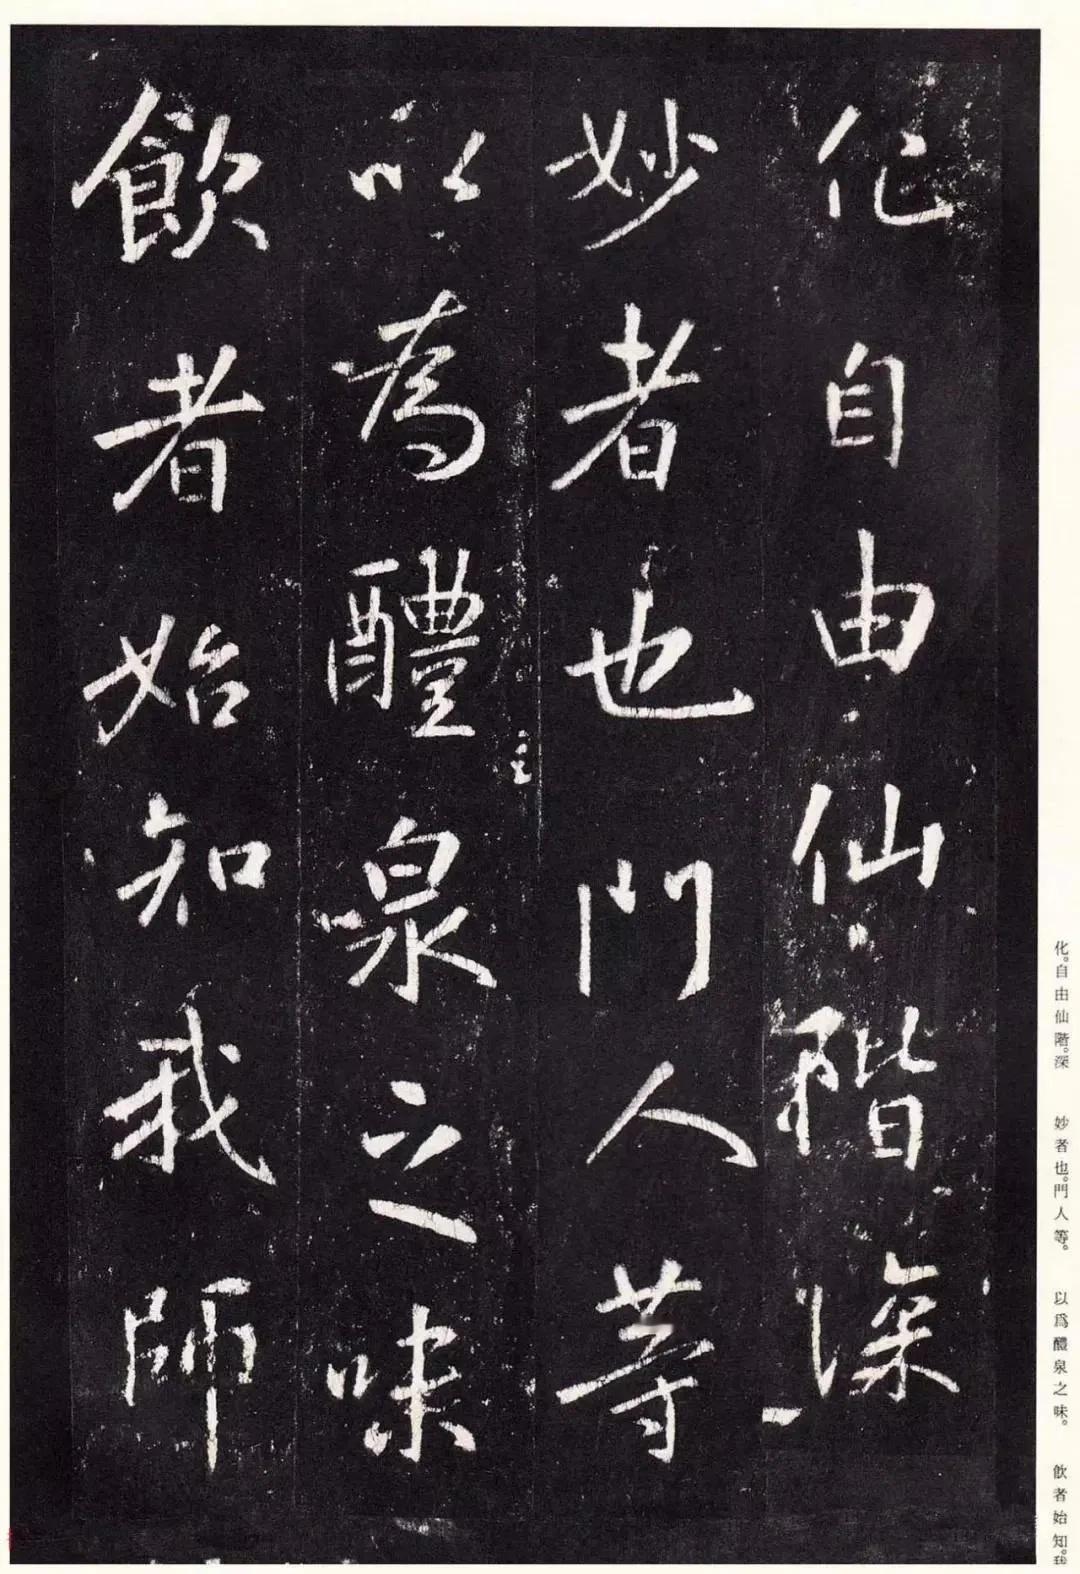 化自由仙階深
妙者也門人等
以為醴泉之味
飲者始知我師
化。自由仙階。深
妙者也。門人等。
以爲醴泉之味。
飲者始知。我